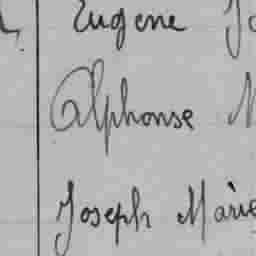 Eugene
Alphonse
Joseph Marie